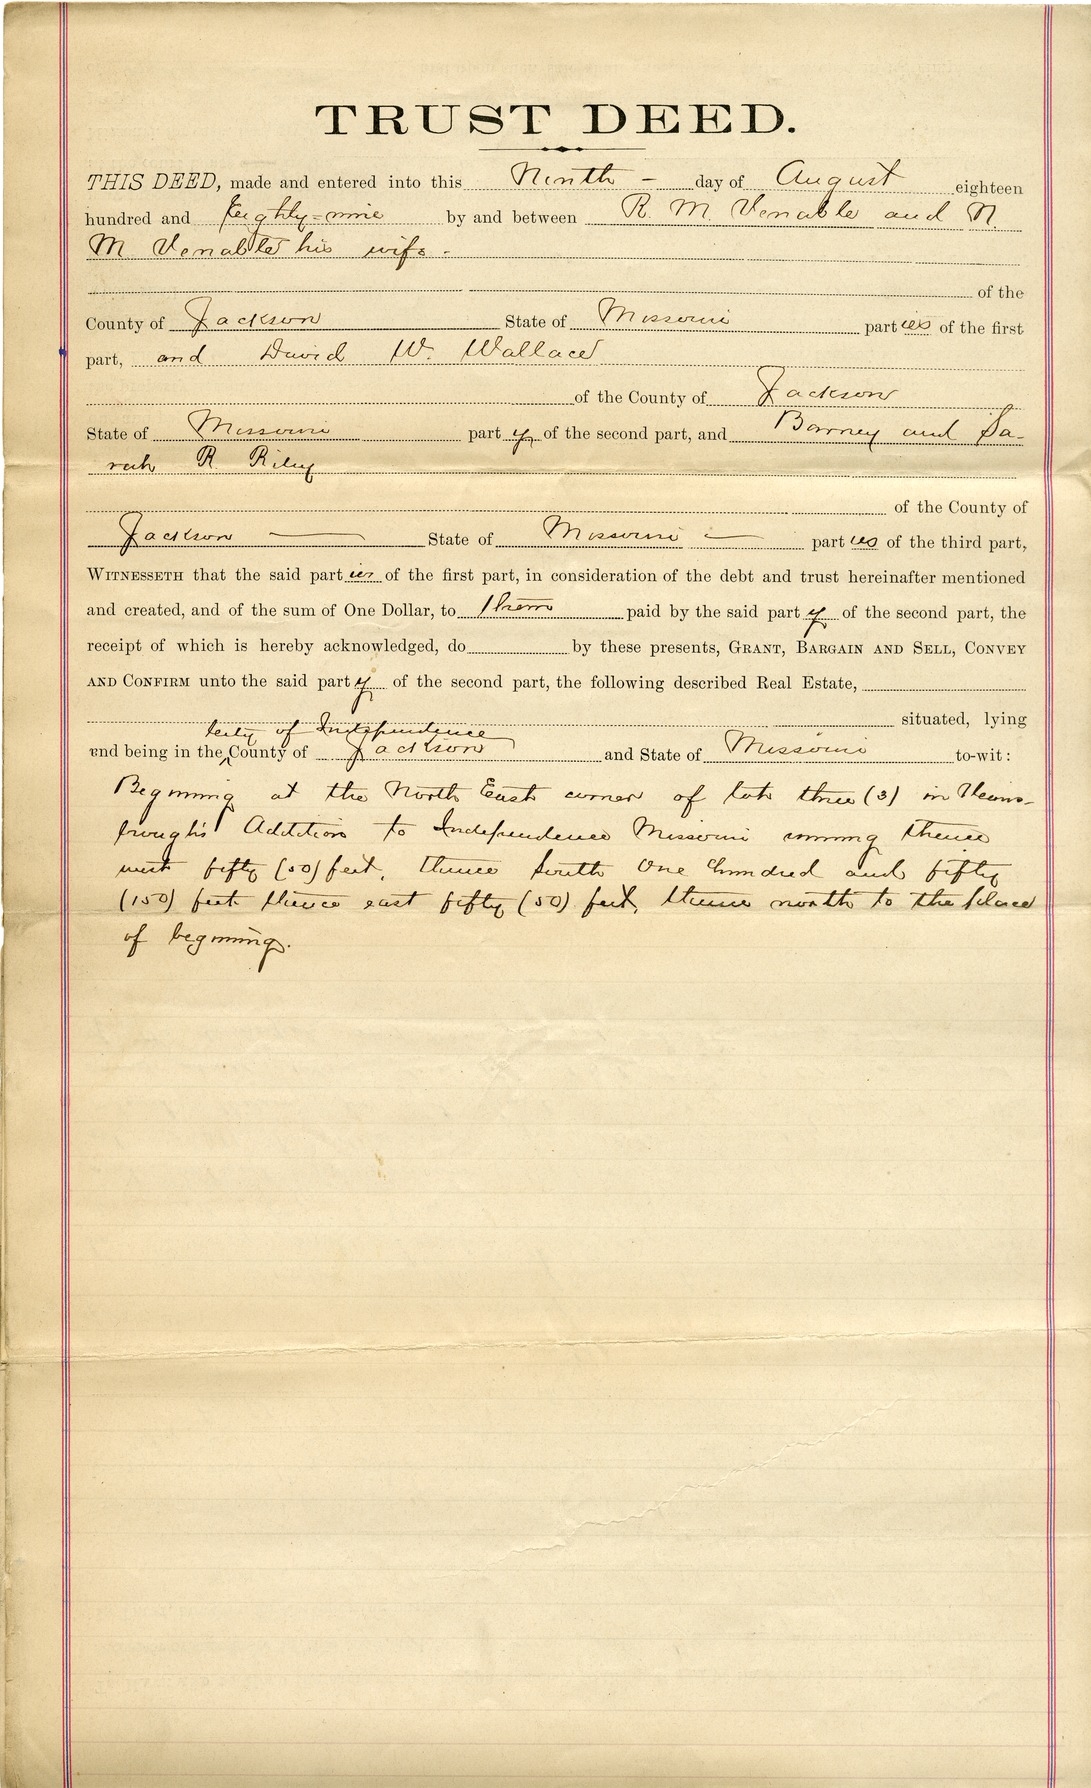 TRUST DEED.
THIS DEED, made and entered into this Ninth – day of August eighteen
hundred and Eighty=nine by and between R. M. Venable and N.
M. Venable his wife -
of the
County of Jackson State of Missouri parties of the first
part, and David W. Wallace
of the County of Jackson
State of Missouri party of the second part, and Barney and Sa-
rah R. Riley
of the County of
Jackson — State of Missouri — parties of the third part,
WITNESSETH that the said parties of the first part, in consideration of the debt and trust hereinafter mentioned
and created, and of the sum of One Dollar, to them paid by the said party of the second part, the
receipt of which is hereby acknowledged, do by these presents, GRANT, BARGAIN AND SELL, CONVEY
AND CONFIRM unto the said party of the second part, the following described Real Estate,
situated, lying
City of Independence
and being in the County of Jackson and State of Missouri to-wit:
Beginning at the North East corner of lot three (3) in
Addition to Independence Missouri running thence
west fifty (50) feet, thence South One hundred and fifty
(150) feet thence east fifty (50) feet, thence north to the place
of beginning.